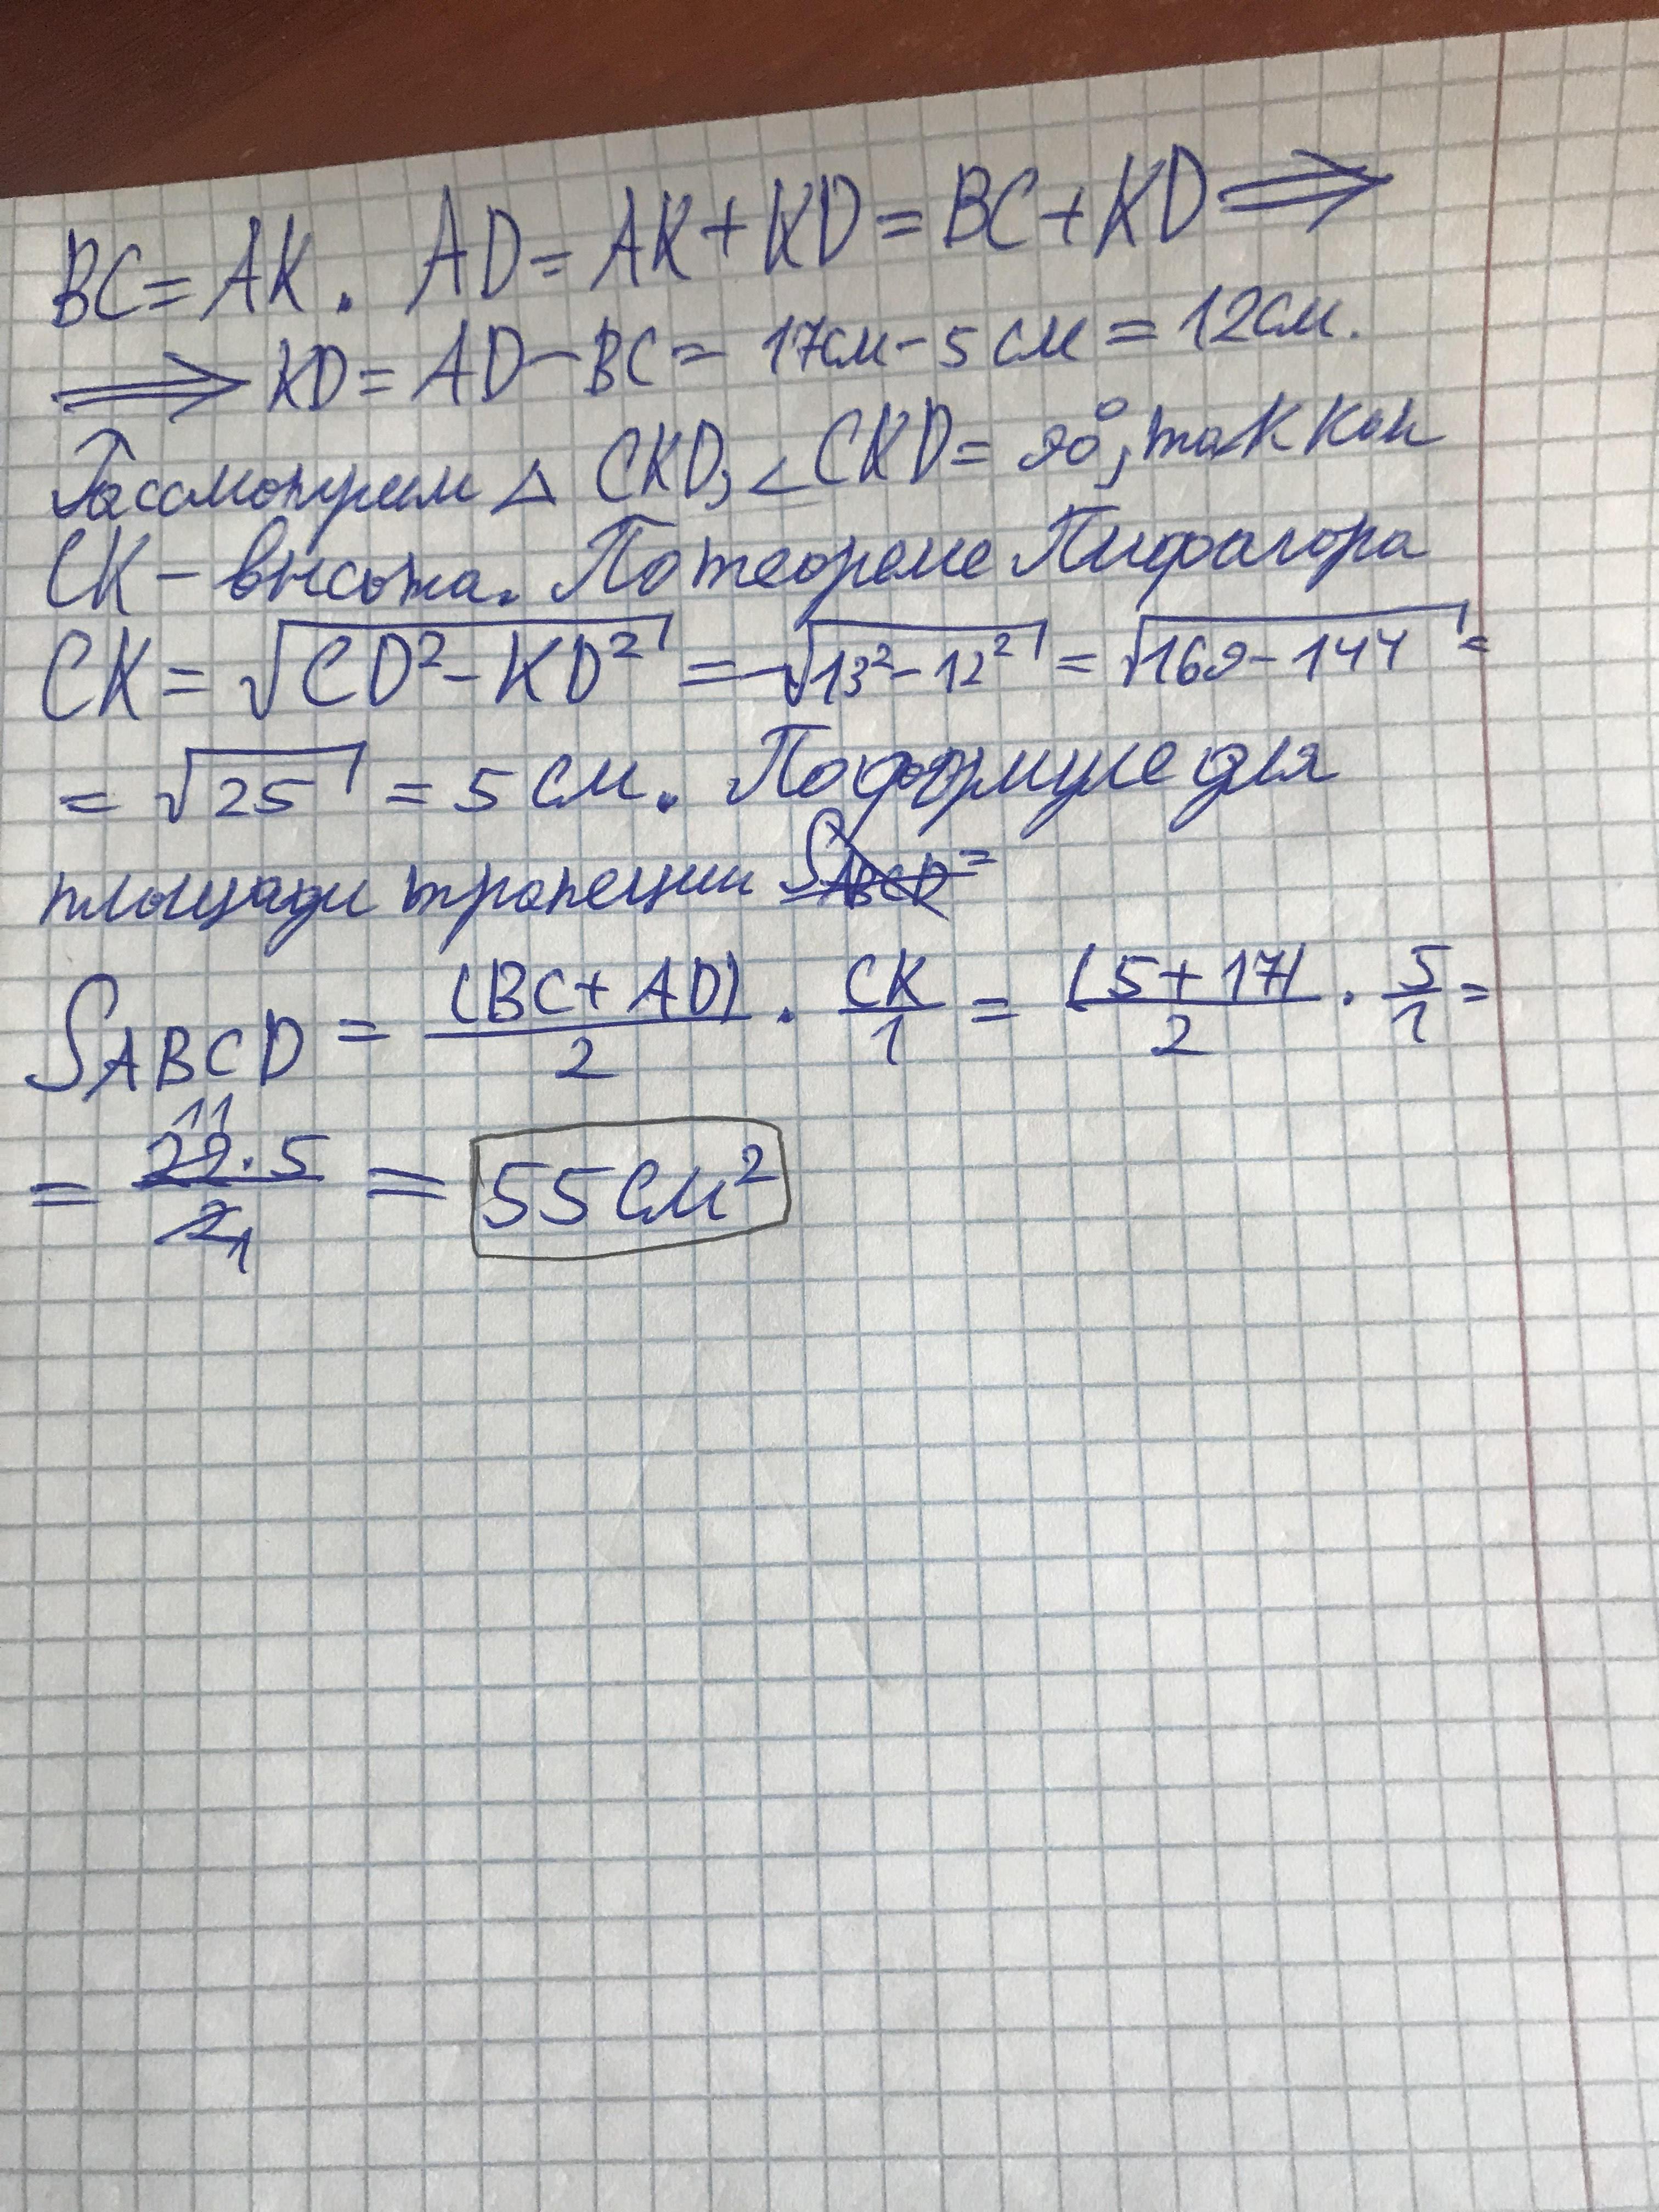 BC = AK. AD = AK + KD = BC + KD ⟹
⟹ KD = AD − BC = 17см − 5 см = 12см.
Рассмотрим △ CKD, ∠CKD = 90°, так как
CK – высота. По теореме Пифагора
CK = √(CD² − KD²) = √(13² − 12²) = √(169 − 144) =
= √25 = 5 см. По формуле для
площади трапеции S_ABCD =
S_ABCD = (BC + AD)/2 · CK/1 = (5 + 17)/2 · 5/1 =
11
= 22 · 5/2 1 = 55 см²